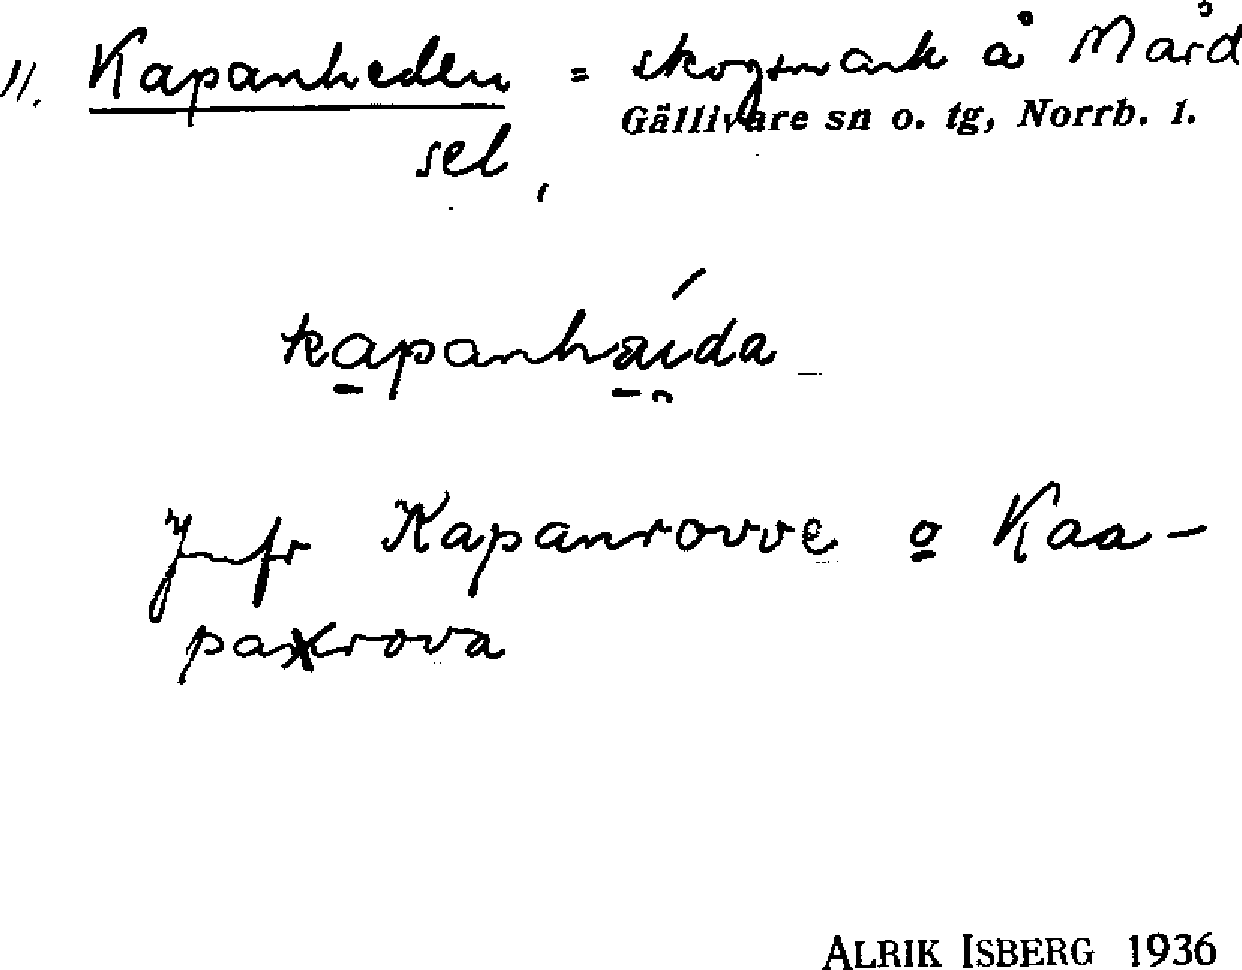 11. Kapanheden = skogsmark å Mård
Gällivare sn o. tg, Norrb. l.
sel,
kapanhaída
Jmfr Kapanrovve o Kaa-
paxrova
ALRIK ISBERG 1936